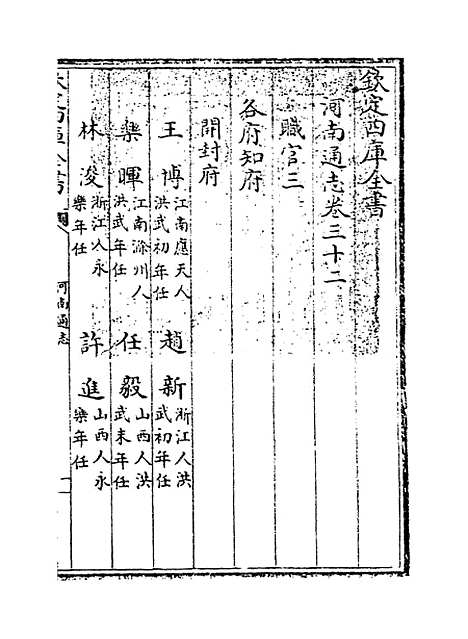 欽定四庫全書
河南通志卷三十二
職官三
各府知府
開封府
王博 江南應天人洪武初年任 趙新 浙江人洪武初年任
樂暉 江南滁州人洪武年任 任毅 山西人洪武末年任
林浚 浙江人永樂年任 許進 山西人永樂年任
河南通志